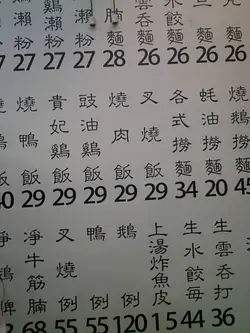 粉 27
雞瀨粉 27
瀨粉 27
麵 28
雲吞麵 26
水餃麵 26
麵 26
麵 26
飯
燒鴨飯 29
貴妃雞飯 29
豉油雞飯 29
燒肉飯 29
叉燒飯 29
各式撈麵 34
蚝油撈麵 20
燒鵝撈麵
淨牛筋腩 68
叉燒例 55
鴨例 55
鵝例 120
上湯炸魚皮 15
生水餃每打 44
生雲吞每打 36